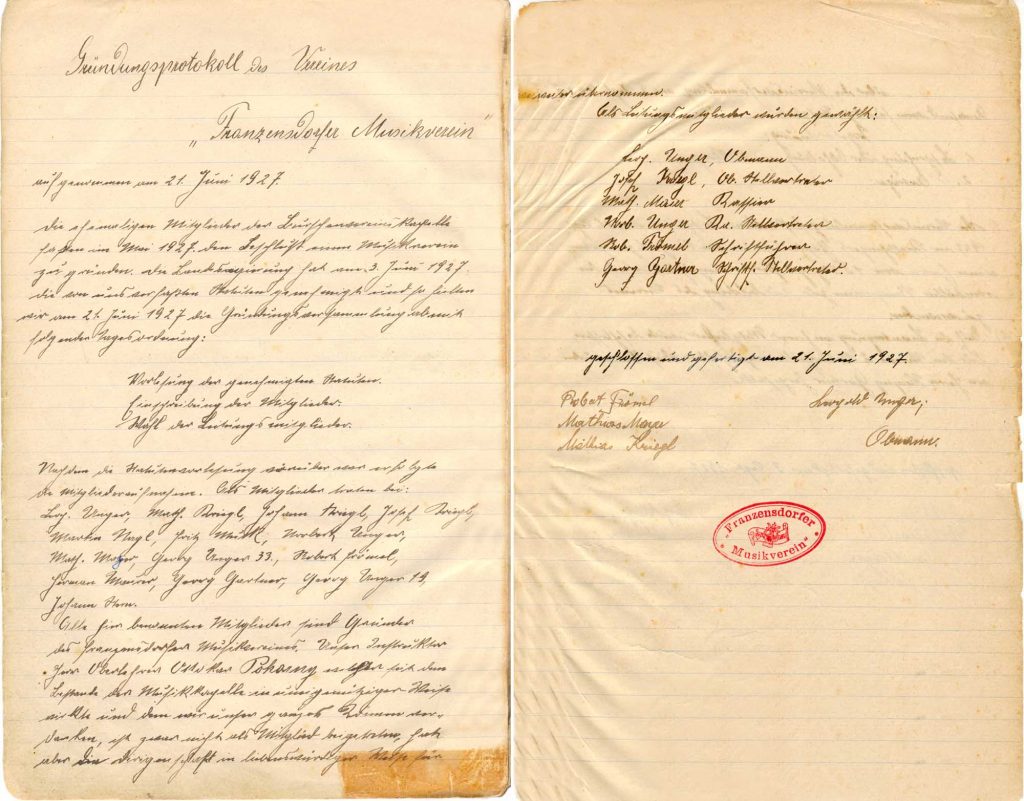 Gründungsprotokoll des Vereines
„Franzensdorfer Musikverein“
aufgenommen am 21. Juni 1927.
Die ehemaligen Mitglieder der Burschenvereinskapelle
faßten im Mai 1927 den Beschluß einen Musikverein
zu gründen. Die Landesregierung hat am 3. Juni 1927.
die von uns verfaßten Statuten genehmigt und so hielten
wir am 21. Juni 1927 die Gründungsversammlung ab mit
folgender Tagesordnung:
Vorlesung der genehmigten Statuten.
Einschreibung der Mitglieder.
Wahl der Leitungsmitglieder.
Nachdem die Statutenvorlesung vorüber war erfolgte
die Mitgliederaufnahme. Als Mitglieder traten bei:
Leop. Unger, Math. Kriegl, Johann Kriegl, Josef Kriegl,
Martin Nagl, Fritz Norbert Unger,
Math. Mayer, Georg Unger 33, Robert Frömel,
Herman Maurer, Georg Gartner, Georg Unger 19,
Johann
Alle hier benannten Mitglieder sind Gründer
des Franzensdorfer Musikvereines. Unser Instruktor
Herr Oberlehrer Ottokar Pokorny welcher seit dem
Bestande der Musikkapelle in uneigennütziger Weise
wirkte und dem wir unser ganzes Können ver-
danken, ist zwar nicht als Mitglied beigetreten, hat
aber die Dirigentschaft in liebenswürdiger Weise für
weiter übernommen.
Als Leitungsmitglieder wurden gewählt:
Leop. Unger, Obmann
Josef Kriegl, Ob. Stellvertreter
Math. Maier Kassier
Norb. Unger Ka. Stellvertreter
Rob. Frömel Schriftführer
Georg Gartner Schriftf. Stellvertreter.
Geschlossen und gefertigt am 21. Juni 1927.
Robert Frömel
Leopold Unger,
Mathias Mayer
Obmann.
Mathias Kriegl
„Franzensdorfer
Musikverein“